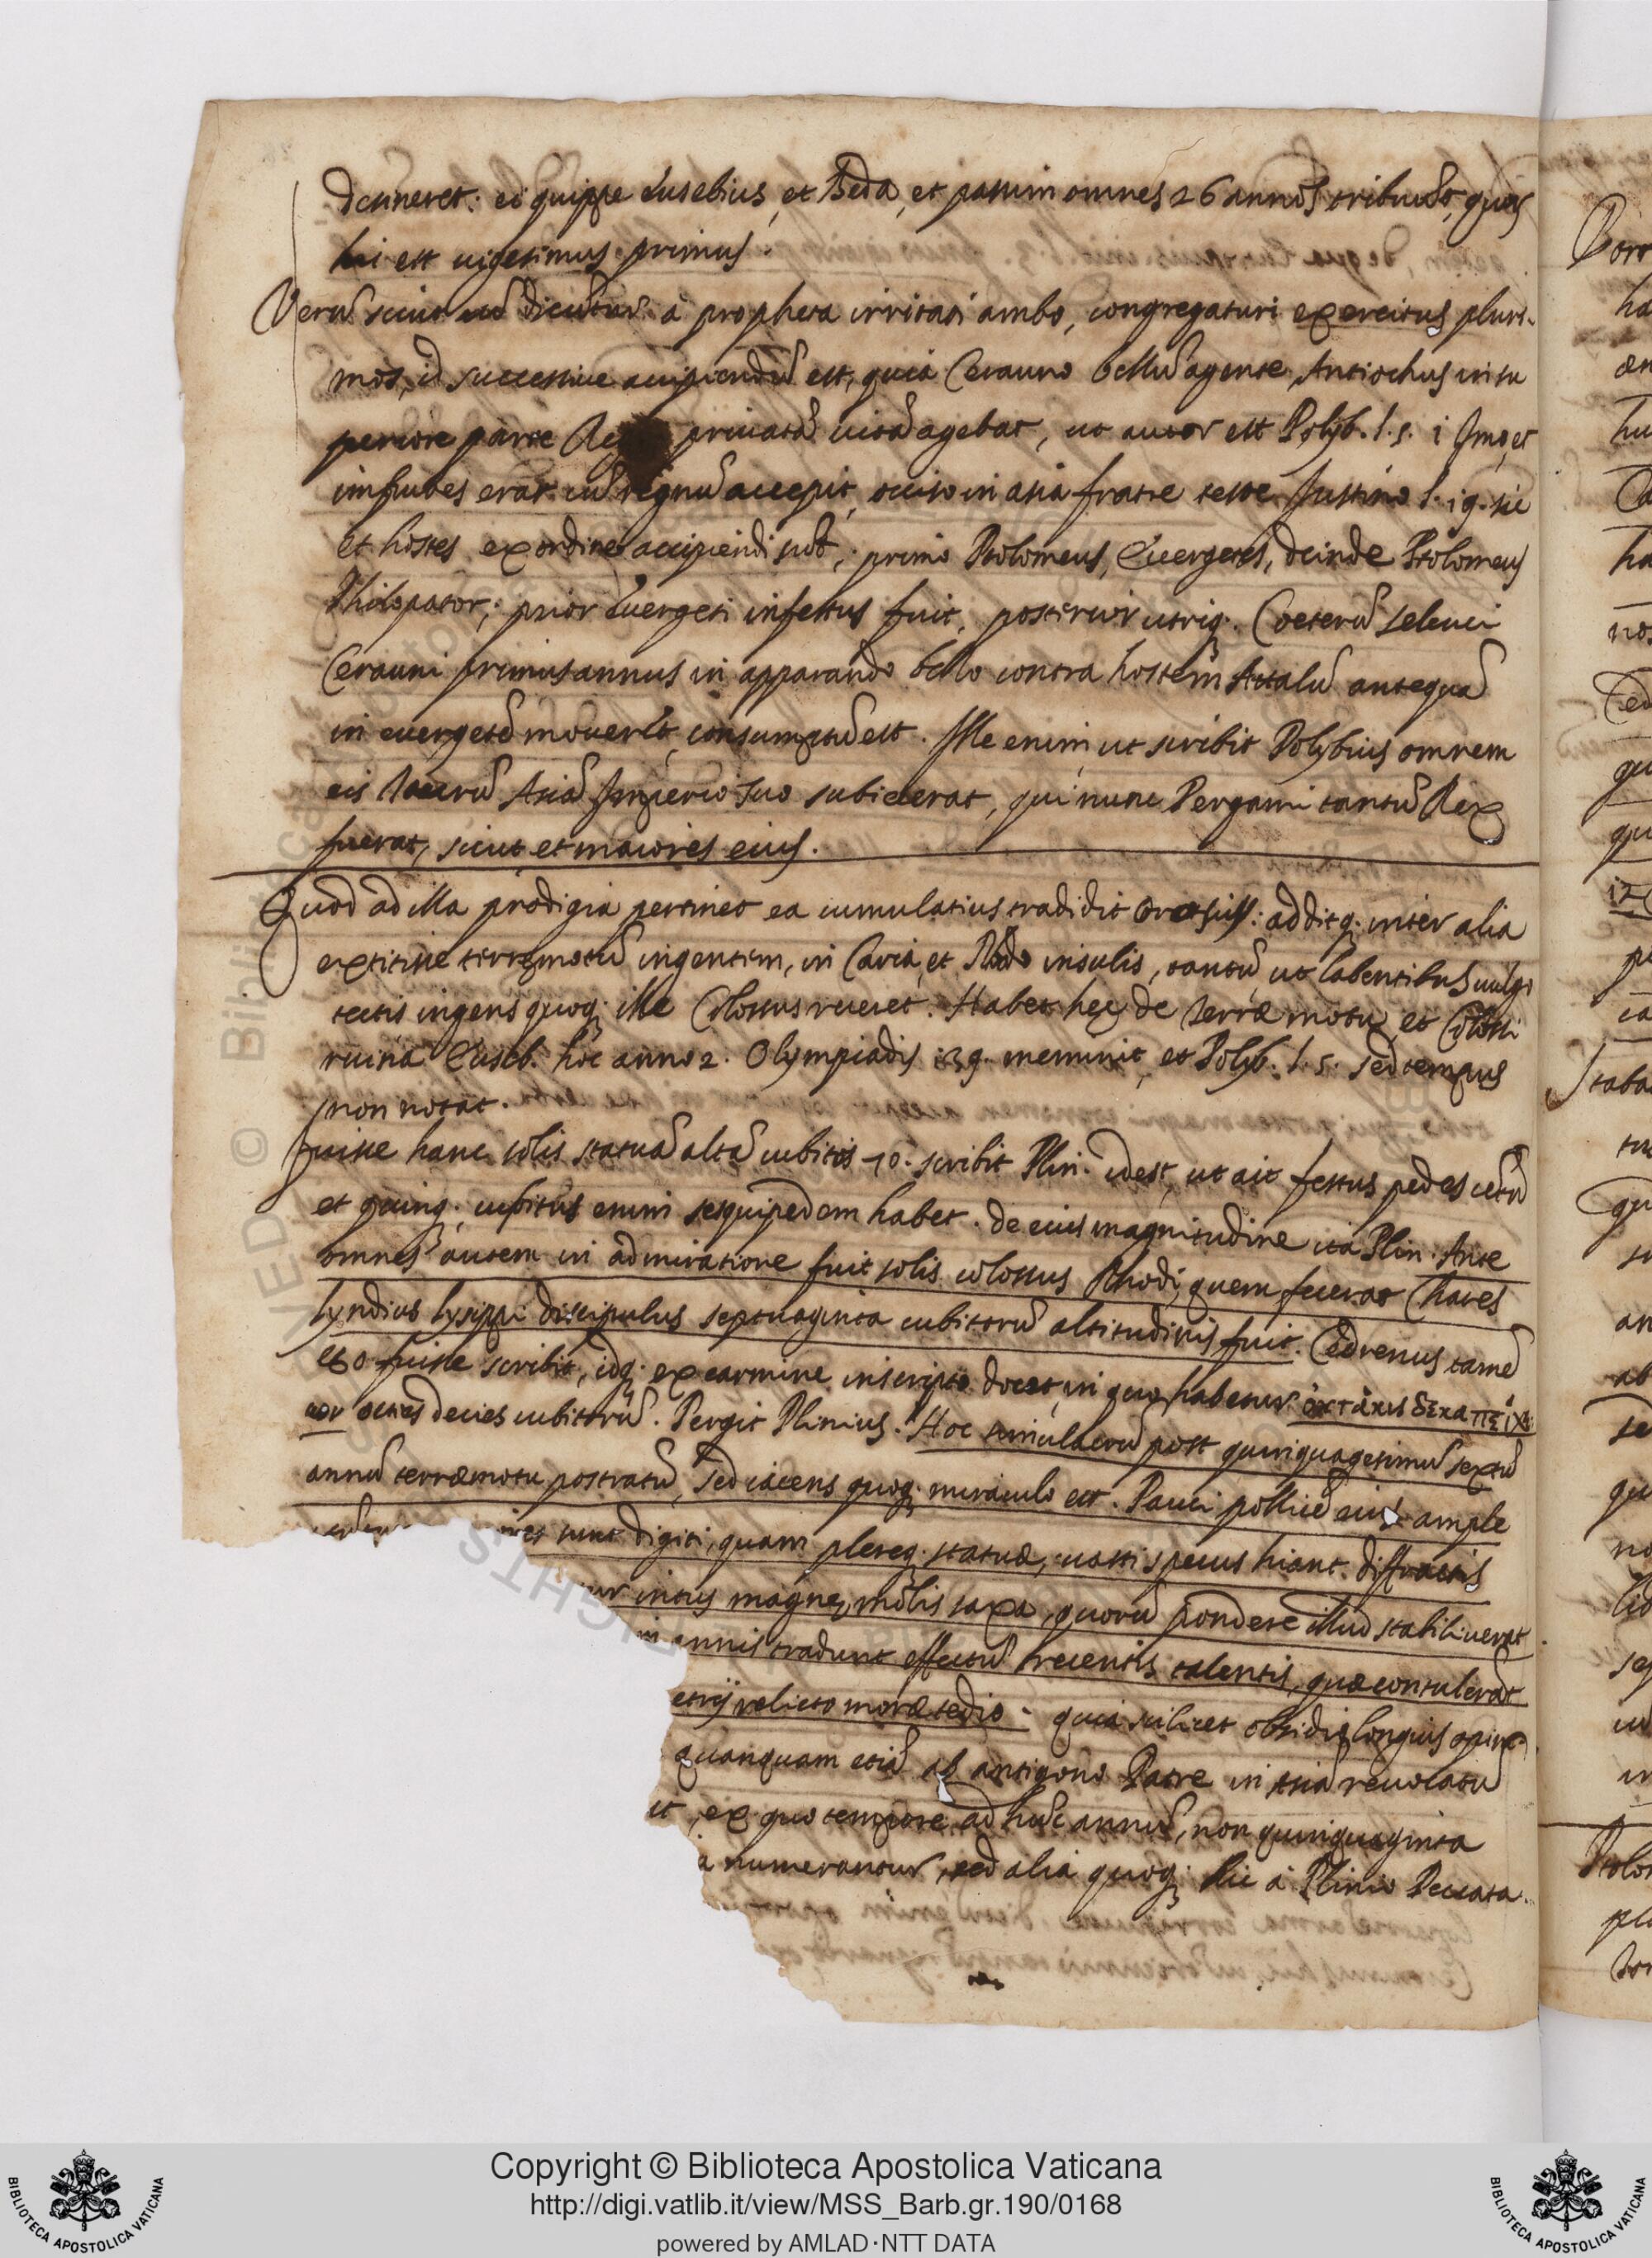 detineret: ei quippe Eusebius, et Beda, et passim omnes 26 annos tribuũt, quos
hi est uigesimus primus.
Verũ sicut cũ dicũtur à propheta irritati ambo, congregaturi exercitus pluri-
mos, id successiue accipiendũ est, quia Cerauno bellũ agente, Antiochus in su
periore parte priuatã uitã agebat, ut autor est Polyb. l. 5. i Imo, et
impubes erat cũ regnũ accepit, occiso in asia fratre teste Justino l. 29. sic
et hostes ex ordine accipiendi sũt, primo Ptolomeus, Euergetes, deinde Ptolomeus
Philopator; prior Euergeti infestus fuit, posterior utriq. Coeterũ seleuci
Cerauni primus annus in apparando bello contra hostem Attalũ antequã
in euergetẽ mouerẽt, consumptũ est. Ille enim, ut scribit Polybius omnem
cis Taurũ Asiã Imperio suo subiecerat, qui nunc Pergami tantũ Rex
fuerat, sicut et maiores eius.
Quod ad illa prodigia pertinet ea cumulatius tradidit Orosius: additq. inter alia
extitisse terremotũ ingentem, in Caria, et Rhodo insulis, tantũ, ut labentibus uulgo
tectis ingens quoq. ille Colossus rueret. Habet hec de terræ motu, et Colossi
ruina Euseb. hoc anno 2. Olympiadis 139. meminit, et Polyb. l. 5. sed tempus
non notat.
Fuisse hanc solis statuã altã cubitis 70. scribit Plin. idest, ut ait festus pedes cẽtũ
et quinq. cubitus enim sesquipedem habet. de eius magnitudine ita Plin. Ante
omnes autem in admiratione fuit solis colossus Rhodi, quem fecerat Chares
lyndius lysippi discipulus septuaginta cubitorũ altitudinis fuit. Cedrenus tamẽ
80 fuisse scribit, idq. ex carmine inscripto docet, in quo habetur ὀκτάκις δέκα πή χε
ων octies decies cubitorũ. Pergit Plinius. Hoc simulacrũ post quinquagesimũ sextũ
annũ terræmotu postratũ, sed iacens quoq. miraculo est. Pauci pollicẽ eius ample
sunt digiti, quam pleræq. statuæ, uasti specus hiant diffractis
intus magne, molis saxa, quorũ pondere illud stabiliuerat
annis tradunt effectũ trecentis talentis, quæ contulerãt
etrij relicto moræ tedio. quia scilicet obsidio longius
quanquam etiã ab antigono Patre in Asiã reuocatũ
it, ex quo tempore ad hũc annũ, non quinquaginta
a numerantur, sed alia quoq. hic à Plinio Peccata.
Copyright © Biblioteca Apostolica Vaticana
http://digi.vatlib.it/view/MSS_Barb.gr.190/0168
powered by AMLAD·NTT DATA